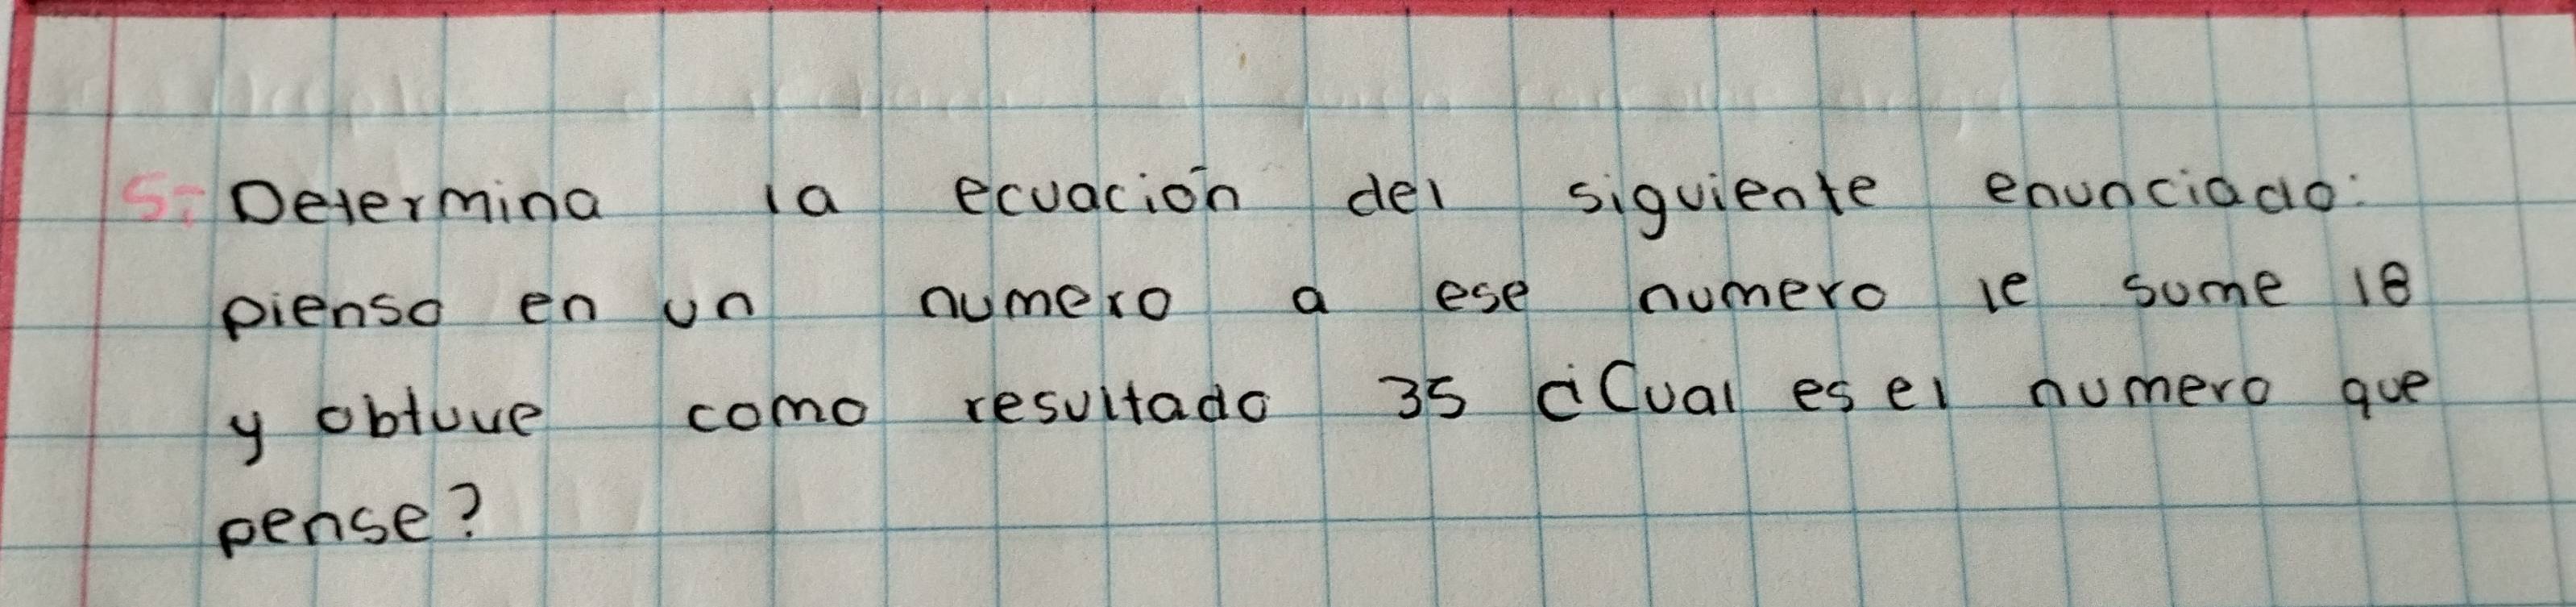 5: Determina la ecuación del siguiente enunciado:
pienso en un numero a ese numero le sume 18
y obtuve como resultado 35 ¿Cual es el numero que
pense?